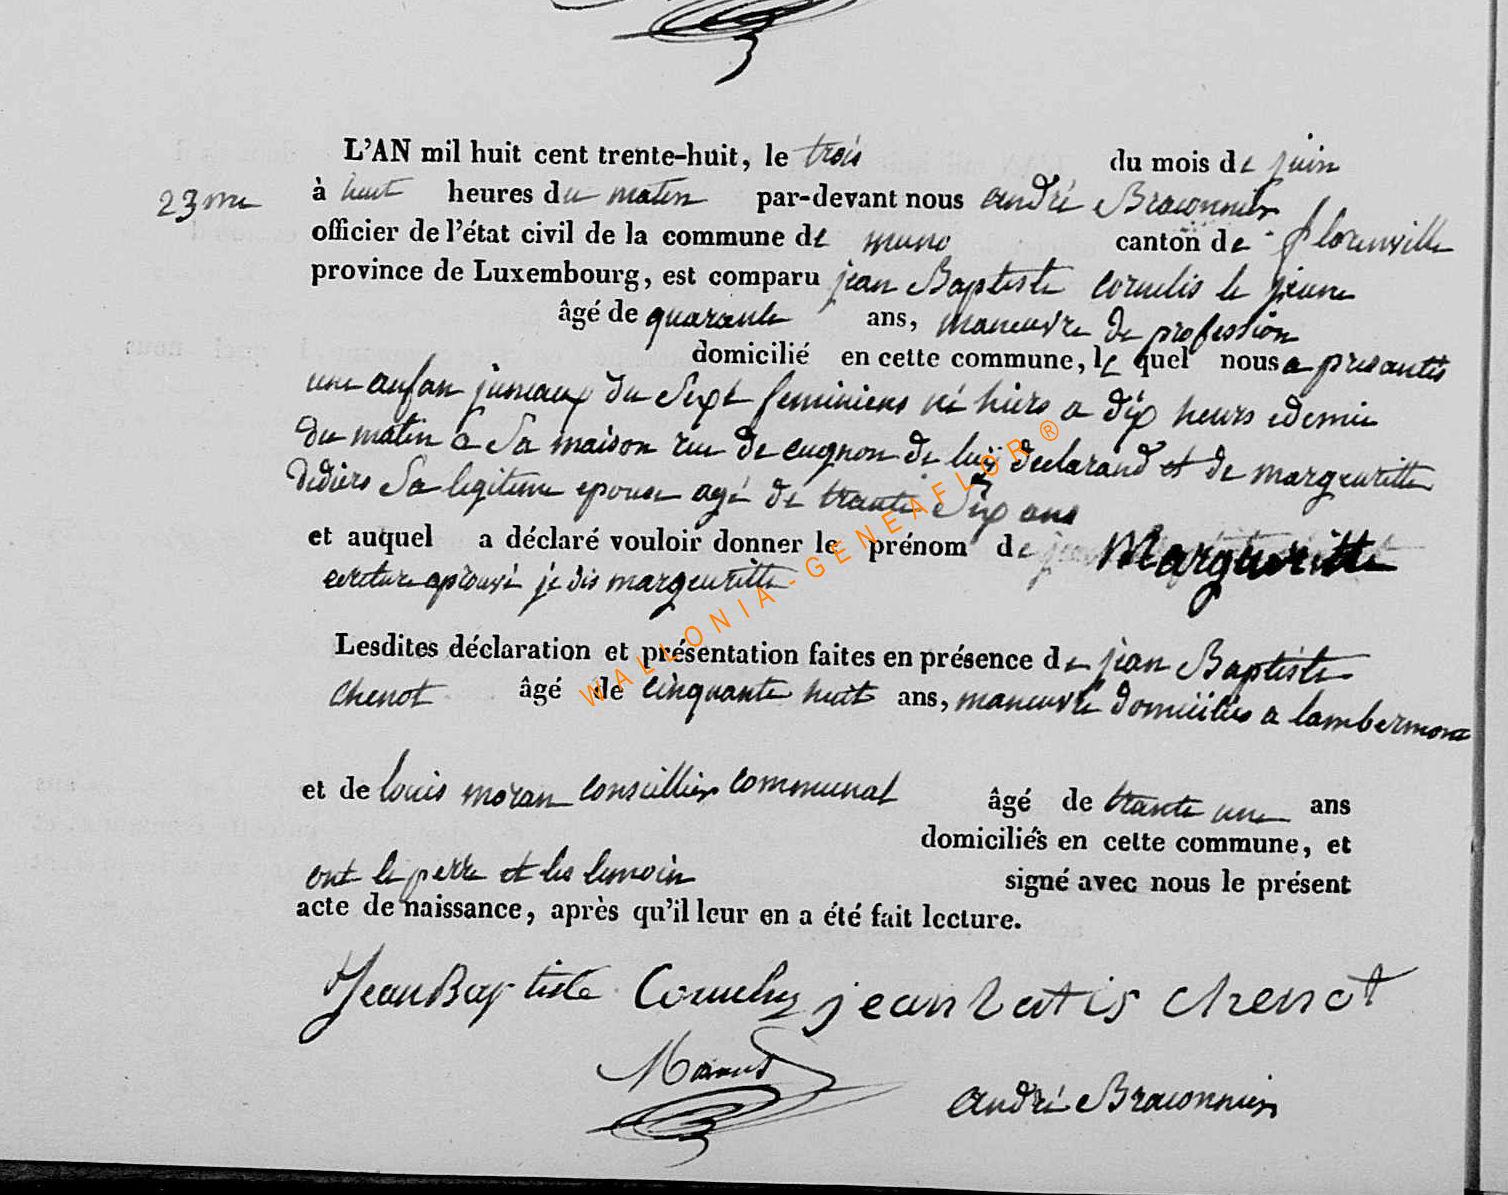 L'AN mil huit cent trente-huit, le trois du mois de juin
23me à huit heures du matin par-devant nous andré Braconnier
officier de l'état civil de la commune de muno canton de florenville
province de Luxembourg, est comparu jean Baptiste cornelis le jeune
âgé de quarante ans, maneuvre de profession
domicilié en cette commune, le quel nous a presantés
une anfan jumeaux du Sexe feminiens né hiers a dix heurs edemie
du matin a Sa maison rue de cugnon de luÿ declarand et de margeuritte
didiers Sa legitime epouse agé de trante Six ans
et auquel a déclaré vouloir donner le prénom de Margueritte
ecriture aprouvé je dis margeuritte
Lesdites déclaration et présentation faites en présence de jean Baptiste
chenot âgé de cinquante huit ans, maneuvre domiciliés a lambermont
et de louis moran conseillier communal âgé de trante une ans
domiciliés en cette commune, et
ont le perre et les temoin signé avec nous le présent
acte de naissance, après qu'il leur en a été fait lecture.
Jean Baptiste Cornelis jean batis chenot
andré Braconnier
WALLONIA-GENEAFLOR ®